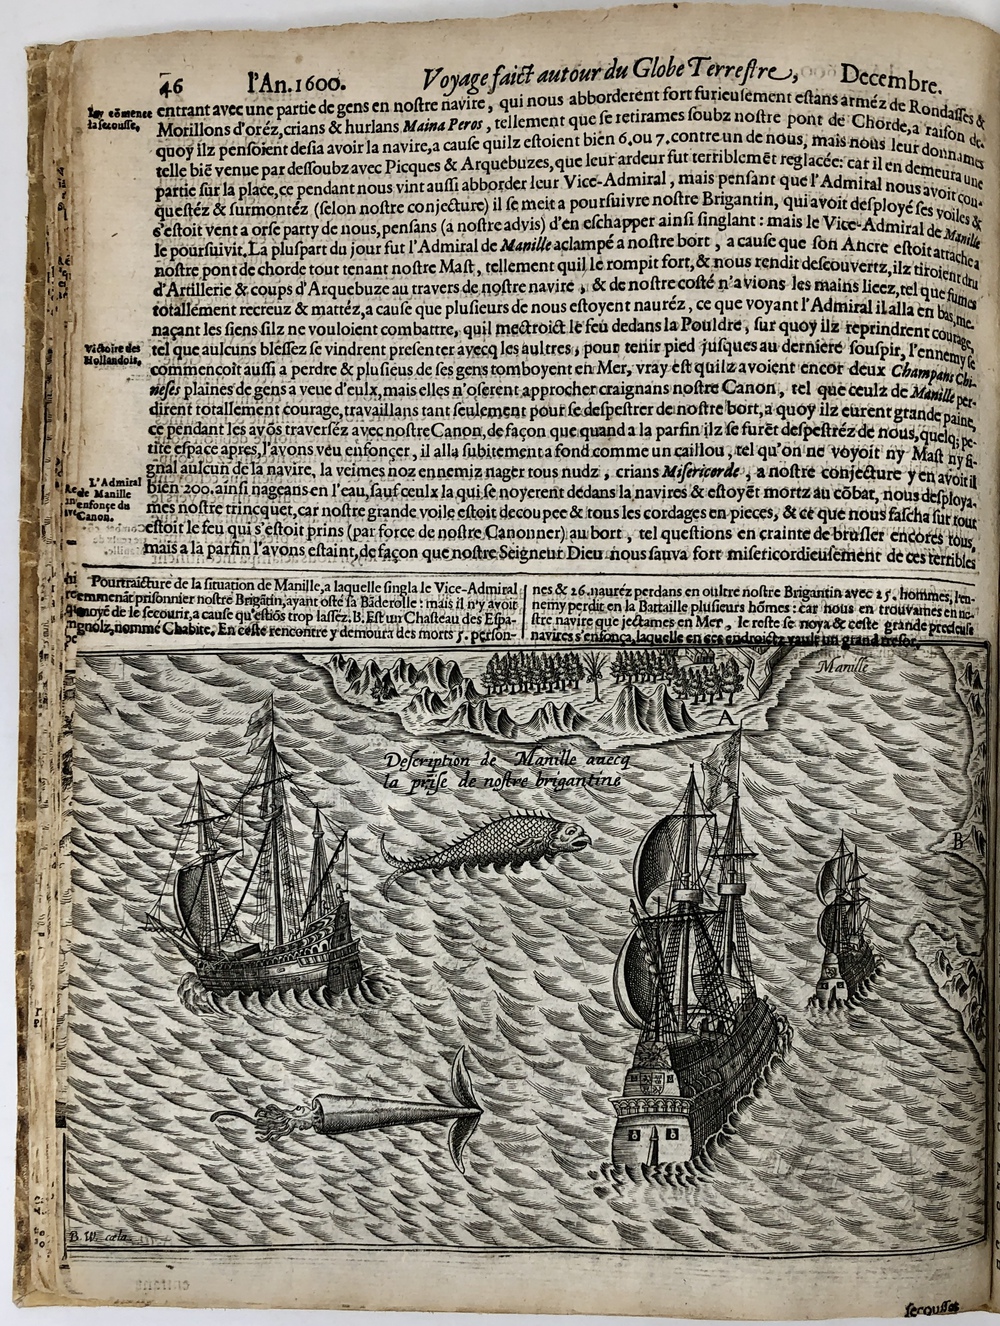 46 l'An.1600. Voyage faict autour du Globe Terrestre, Decembre.
Icy cōmence
la secousse,
entrant avec une partie de gens en nostre navire, qui nous abborderent fort furieusement estans arméz de Rondasses &
Morillons d'oréz, crians & hurlans Maina Peros, tellement que se retirames soubz nostre pont de Chorde, a raison de
quoy ilz pensoient desia avoir la navire, a cause quilz estoient bien 6. ou 7. contre un de nous, mais nous leur donnames
telle biē venue par dessoubz avec Picques & Arquebuzes, que leur ardeur fut terriblemēt reglacée: car il en demeura une
partie sur la place, ce pendant nous vint aussi abborder leur Vice-Admiral, mais pensant que l'Admiral nous avoit con-
questéz & surmontéz (selon nostre conjecture) il se meit a poursuivre nostre Brigantin, qui avoit desployé ses voiles &
s'estoit vent a orse party de nous, pensans (a nostre advis) d'en eschapper ainsi singlant: mais le Vice-Admiral de Manille
le poursuivit. La pluspart du jour fut l'Admiral de Manille aclampé a nostre bort, a cause que son Ancre estoit attache a
nostre pont de chorde tout tenant nostre Mast, tellement quil le rompit fort, & nous rendit descouvertz, ilz tiroient dru
d'Artillerie & coups d'Arquebuze au travers de nostre navire, & de nostre costé n'avions les mains lieez, tel que fumes
totallement recreuz & mattéz, a cause que plusieurs de nous estoyent nauréz, ce que voyant l'Admiral il alla en bas, me-
naçant les siens silz ne vouloient combattre, quil mectroict le feu dedans la Pouldre, sur quoy ilz reprindrent courage,
Victoire des
Hollandois,
tel que aulcuns blessez se vindrent presenter avecq les aultres, pour tenir pied jusques au derniere souspir, l'ennemy se
commencoit aussi a perdre & plusieus de ses gens tomboyent en Mer, vray est quilz avoient encor deux Champans Chi-
neses plaines de gens a veue d'eulx, mais elles n'oserent approcher craignans nostre Canon, tel que ceulz de Manille per-
dirent totallement courage, travaillans tant seulement pour se despestrer de nostre bort, a quoy ilz eurent grande paine,
ce pendant les avōs traverséz avec nostre Canon, de façon que quand a la parfin ilz se furēt despestréz de nous, quelq; pe-
tite espace apres, l'avons veu enfonçer, il alla subitement a fond comme un caillou, tel qu'on ne voyoit ny Mast ny si-
gnal aulcun de la navire, la veimes noz ennemiz nager tous nudz, crians Misericorde, a nostre conjecture y en avoit il
L'Admiral
de Manille
enfonçe du
Canon.
bien 200. ainsi nageans en l'eau, sauf ceulx la qui se noyerent dedans la navires & estoyēt mortz au cōbat, nous desploya-
mes nostre trincquet, car nostre grande voile estoit decoupee & tous les cordages en pieces, & ce que nous fascha sur tout
estoit le feu qui s'estoit prins (par force de nostre Canonner) au bort, tel questions en crainte de brusler encores tous,
mais a la parfin l'avons estaint, de façon que nostre Seigneur Dieu nous sauva fort misericordieusement de ces terribles
Pourtraicture de la situation de Manille, a laquelle singla le Vice-Admiral
emmenāt prisonnier nostre Brigātin, ayant osté sa Bāderolle: mais il n'y avoit
moyé de le secourir, a cause qu'estiōs trop lassez. B. Est un Chasteau des Espa-
gnolz, nommé Chabite, En ceste rencontre y demoura des morts 5. person-
nes & 26. nauréz perdans en oultre nostre Brigantin avec 25. hommes, l'en-
nemy perdit en la Battaille plusieurs hōmes: car nous en trouvames en no-
stre navire que jectames en Mer, le reste se noya & ceste grande precieuse
navires s'enfonça, laquelle en ces endroictz vault un grand tresor.
Manille
A
Description de Manille auecq
la prise de nostre brigantine
B
B. W. cœla.
secousses